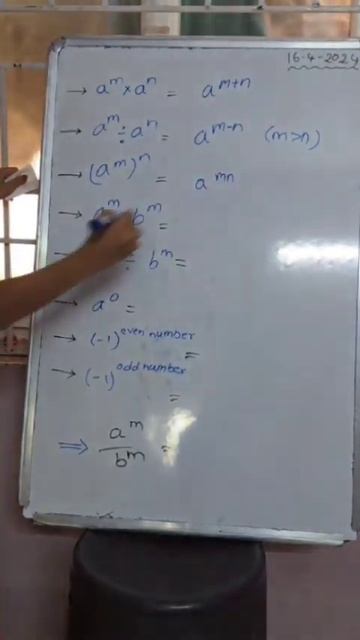 16-4-2024
→ a^m × a^n = a^{m+n}
→ a^m ÷ a^n = a^{m-n} (m>n)
→ (a^m)^n = a^{mn}
→ a^m b^m =
→ ÷ b^m =
→ a^0 =
→ (-1)^{even number} =
→ (-1)^{odd number} =
⇒ a^m / b^m =